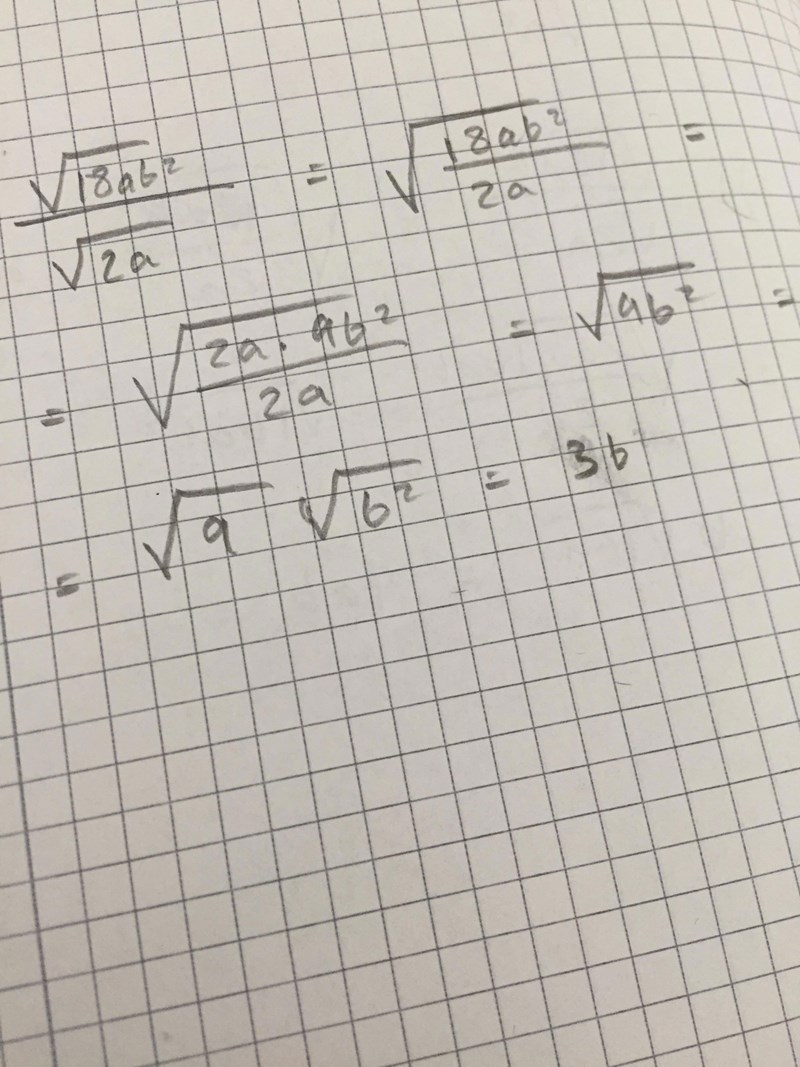 √18ab² / √2a = √(18ab² / 2a) =
= √(2a · 9b² / 2a) = √9b² =
= √9 √b² = 3b